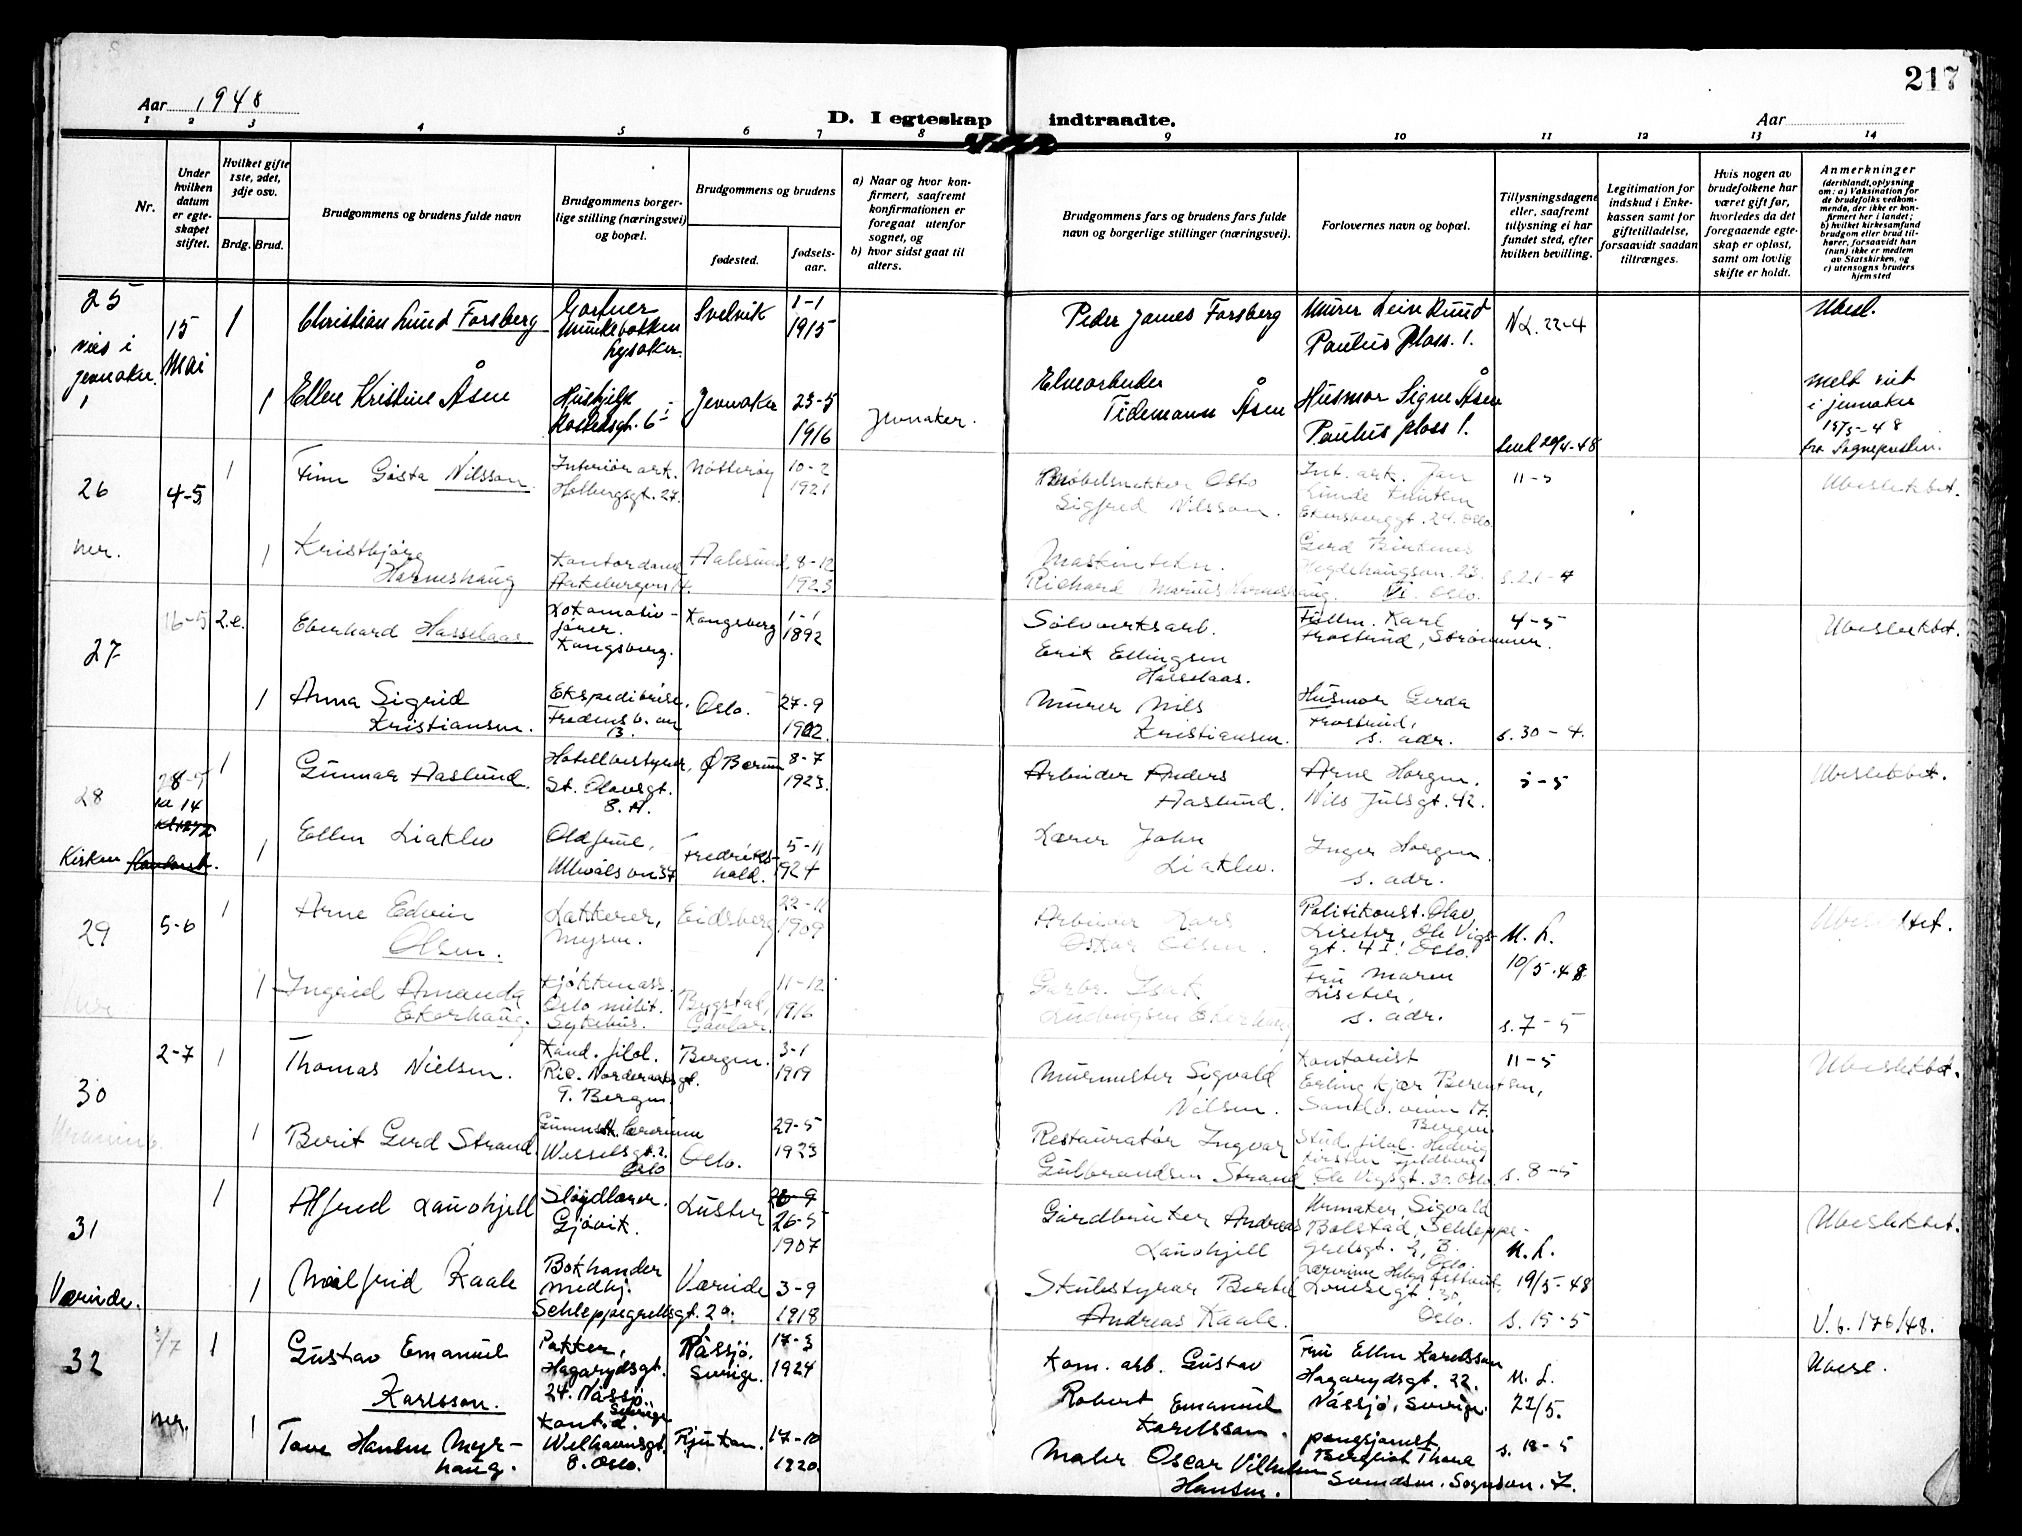 217
Aar 1948
D. I egteskap indtraadte.
Aar
1 2 3 4 5 6 7 8 9 10 11 12 13 14
Nr.
Under hvilken datum er egteskapet stiftet.
Hvilket gifte 1ste, 2det, 3dje osv.
Brdg. Brud.
Brudgommens og brudens fulde navn
Brudgommens borgerlige stilling (næringsvei) og bopæl.
Brudgommens og brudens
fødested.
fødselsaar.
a) Naar og hvor konfirmert, saafremt konfirmationen er foregaat utenfor sognet, og
b) hvor sidst gaat til alters.
Brudgommens fars og brudens fars fulde navn og borgerlige stillinger (næringsvei).
Forlovernes navn og bopæl.
Tillysningsdagene eller, saafremt tillysning ei har fundet sted, efter hvilken bevilling.
Legitimation for indskud i Enkekassen samt for giftetilladelse, forsaavidt saadan tiltrænges.
Hvis nogen av brudefolkene har været gift før, hvorledes da det foregaaende egteskap er opløst, samt om lovlig skifte er holdt.
Anmerkninger (deriblandt oplysning om: a) Vaksination for de brudefolks vedkommende, der ikke er konfirmert her i landet; b) hvilket kirkesamfund brudgom eller brud tilhører, forsaavidt han (hun) ikke er medlem av Statskirken, og c) utensogns bruders hjemsted
25
Vies i Jevnaker.
15 Mai
1
Christian Lund Forsberg
Gartner
Lysaker.
Svelvik
1-1
1915
Peder James Forsberg
Murer Leiv Ruud
Paulus plass 1.
N.L. 22-4
Ubesl.
1
Ellen Kristine Åsen
Hushjelp
Jevnaker
23-5
1916
Jevnaker.
Tidemann Åsen
Husmor Signe Åsen
Paulus plass 1.
i Jevnaker
fra Sognepresten.
26
4-5
1
Finn Gösta Nilsson
Interiørark.
Holbergsgt. 27.
Nøtterøy
10-2
1921
Møbelsnekker Otto
Sigfred Nilsson.
Int. ark. Jan
Ekersberggt. 24. Oslo.
11-5
Ubeslektet.
1
Kristbjørg
Harneshaug
Kontordame
Aalesund
8-12
1923
Maskintekn.
Richard Marius Harneshaug.
Gerd Birkenes
Hegdehaugsvn. 23.
VI. Oslo.
s. 21-4
27
16-5
2.e.
Eberhard Hasselaas
Lokomotiv-
fører.
Kongsberg.
Kongsberg
1-1
1892
Sølvverksarb.
Erik Ellingsen
Hasselaas.
Karl
Frostrud, Strømmen.
4-5
Ubeslektet.
1
Anna Sigrid
Kristiansen.
Ekspeditrise,
Oslo.
27-9
1902.
Murer Nils
Kristiansen.
Husmor Gerda
Frostrud,
s. adr.
s. 30-4.
28
28-5
kl 14
Kirken
1
Gunnar Aaslund.
Hotellbestyrer,
St. Olavsgt.
8. A.
Ø Bærum
8-7
1923.
Arbeider Anders
Aaslund.
Arne Horgen,
Nils Juelsgt. 42.
5-5
Ubeslektet.
1
Ellen Liaklev
Oldfrue,
Ullevålsvn 37
Fredrikshald.
5-11
1924
Lærer John
Liaklev.
Inger Horgen.
s. adr.
29
5-6
1
Arne Edvin
Olsen.
Lakkerer,
Mysen.
Eidsberg
22-11
1909
Arbeider Lars
Oskar Olsen.
Politikonst. Olav
Liseter, Ole Vigs-
gt. 4 I. Oslo.
N. L.
10/5. 48
Ubeslektet.
1
Ingrid Amanda
Ekerhaug.
Kjøkkenass.
Oslo milit.
Sykehus.
Bygstad,
Gaular.
11-12
1916
Gbr. Isak
Ludvigsen Ekerhaug
Fru Maren
Liseter,
s. adr.
s. 7-5
30
2-7
1
Thomas Nielsen.
Kand. filol.
Ric. Nordraaksgt.
9. Bergen.
Bergen.
3-1
1919
Murmester Sigvald
Nilsen.
Kontorist
Erling Kjær Berentsen,
Bergen.
11-5
Ubeslektet.
1
Berit Gerd Strand.
Wesselsgt.
Oslo
Oslo.
29-5
1923
Restauratør Ingvar
Gulbrandsen Strand
Stud. filol. Hedvig
Ole Vigsgt. 30. Oslo.
s. 8-5
31
Værnde.
1
Alfred Lauvhjell
Sløydlærer.
Gjøvik.
Luster
26-5
1907
Gårdbruker Andreas
Lauvhjell
Urmaker Sigvald
Bolstad, Schleppe-
grellsgt.
Oslo.
N. L.
Ubeslektet.
1
Målfrid Kaale
Bokhandler
medhj.
Schleppegrellsgt. 2a.
3-9
1918
Skulestyrar Bertel
Andreas Kaale.
Oslo.
19/5-48
s. 15-5
V. b. 176/48.
32
3/7
1
Gustav Emanuel
Karlsson.
Pakker,
Hagarydsgt.
24. Nässjö.
Sverige
Nässjö.
Sverige.
17-3
1924
Kom. arb. Gustav
Robert Emanuel
Karlsson.
Fru Ellen Karlsson
Hagarydsgt. 22.
Nässjö, Sverige.
N. L.
22/5.
Ubesl.
1
Tove Hansen Myr-
haug.
Kont.d.
Welhavensgt.
8. Oslo.
Rjukan.
17-10
1920.
Maler Oscar Vilhelm
Hansen.
Bergliot Thora
Svendsen. Sognsvn. 7.
s. 18-5